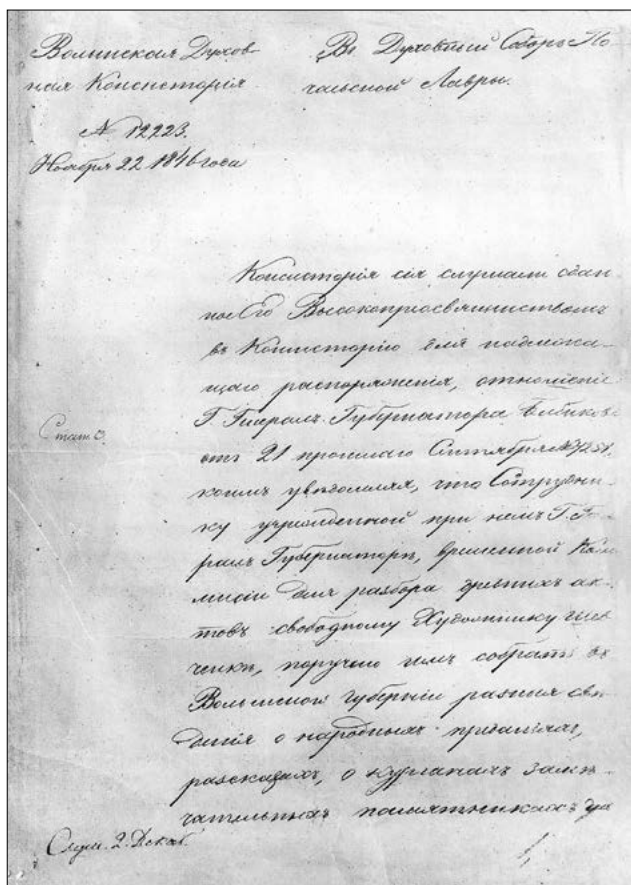 Волынская Духов-
ная Консисторія
№ 12223.
Ноября 22 1846 года
Въ Духовный Соборъ По
чаевской Лавры.
Консисторія сія слушали сдан-
ное Его Высокопреосвященствомъ
въ Консисторію для надлежа-
щаго распоряженія, отношеніе
Г. Генералъ Губернатора Бибикова
отъ 21 прошлаго Сентября №
коимъ увѣдомляя, что Сотрудни-
ку учрежденной при немъ Г. Гене
ралъ Губернаторѣ, временной Ком
мисіи для разбора древнихъ ак-
товъ свободному Художнику Шев
ченкѣ, поручено имъ собрать въ
Волынской Губерніи разныя свѣ
денія о народныхъ преданіяхъ,
разсказахъ, о курганахъ замѣ-
чательныхъ памятникахъ
Слуш. 2. Декаб.